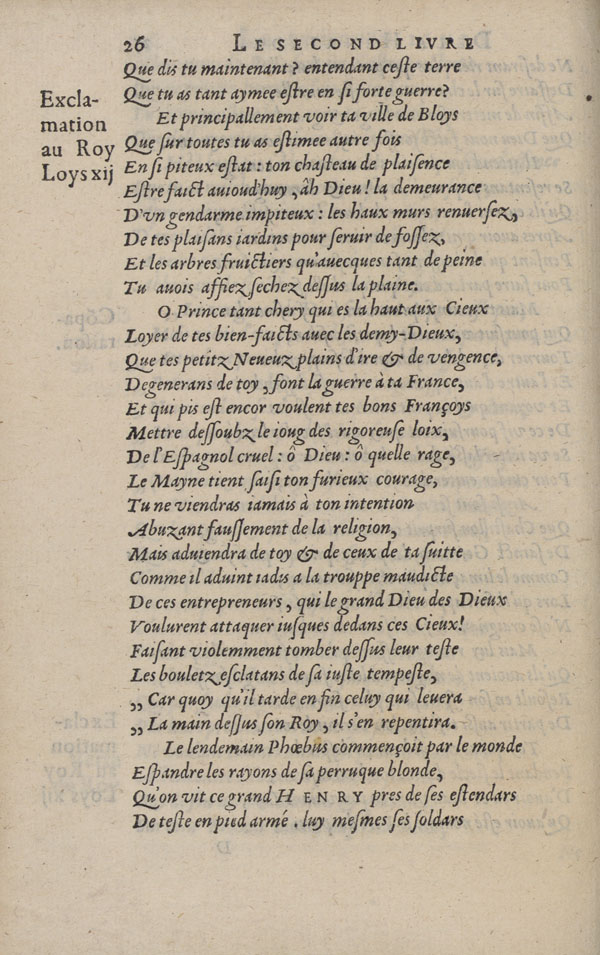 26 LE SECOND LIVRE
Que dis tu maintenant? entendant ceste terre
Que tu as tant aymee estre en si forte guerre?
Excla-
mation
au Roy
Loys xij
Et principallement voir ta ville de Bloys
Que sur toutes tu as estimee autre fois
En si piteux estat: ton chasteau de plaisence
Estre faict auiourd'huy, âh Dieu! la demeurance
D'vn gendarme impiteux: les haux murs renuersez,
De tes plaisans iardins pour seruir de fossez,
Et les arbres fruictiers qu'auecques tant de peine
Tu auois affiez sechez dessus la plaine.
O Prince tant chery qui es la haut aux Cieux
Loyer de tes bien-faicts auec les demy-Dieux,
Que tes petitz Neueuz plains d'ire & de vengence,
Degenerans de toy, font la guerre à ta France,
Et qui pis est encor voulent tes bons Françoys
Mettre dessoubz le ioug des rigoreuse loix,
De l'Espagnol cruel: ô Dieu: ô quelle rage,
Le Mayne tient saisi ton furieux courage,
Tu ne viendras iamais à ton intention
Abuzant faussement de la religion,
Mais aduiendra de toy & de ceux de ta suitte
Comme il aduint iadis a la trouppe maudicte
De ces entrepreneurs, qui le grand Dieu des Dieux
Voulurent attaquer iusques dedans ces Cieux!
Faisant violemment tomber dessus leur teste
Les bouletz esclatans de sa iuste tempeste,
,, Car quoy qu'il tarde en fin celuy qui leuera
,, La main dessus son Roy, il s'en repentira.
Le lendemain Phœbus commençoit par le monde
Espandre les rayons de sa perruque blonde,
Qu'on vit ce grand HENRY pres de ses estendars
De teste en pied armé. luy mesmes ses soldars